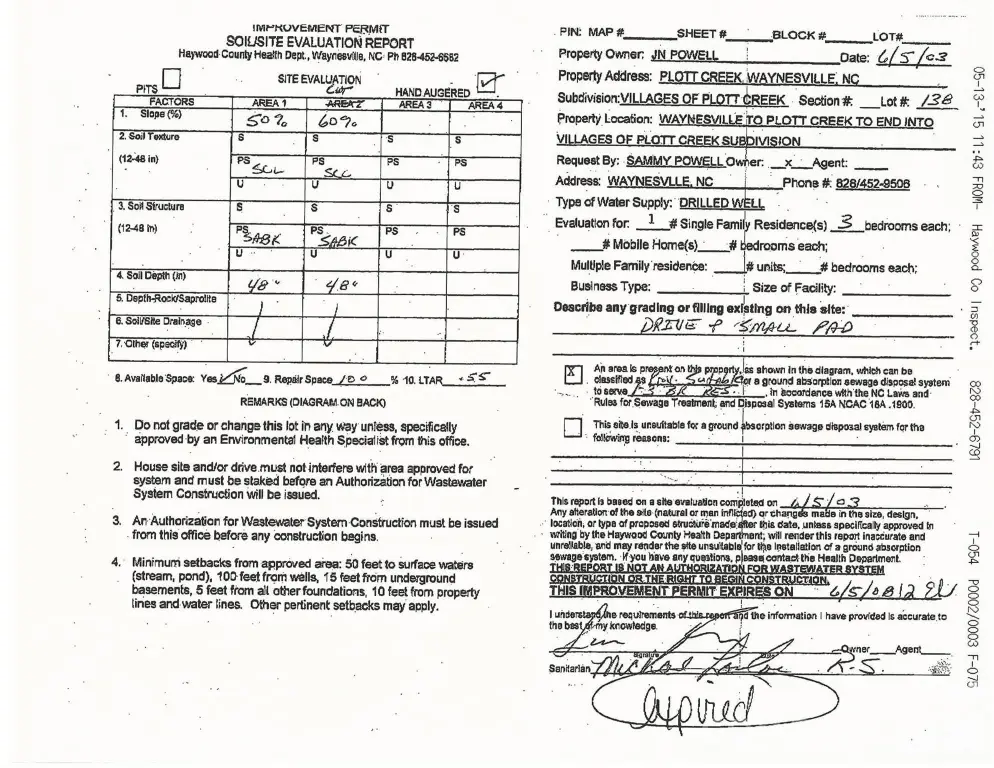 IMPROVEMENT PERMIT
SOIL/SITE EVALUATION REPORT
Haywood County Health Dept., Waynesville, NC Ph 828-452-6682
SITE EVALUATION
PITS
Cut
HAND AUGERED
FACTORS AREA 1 AREA 2 AREA 3 AREA 4
1. Slope (%) 50% 60%
2. Soil Texture S S S S
(12-48 in) PS PS PS PS
SCL SCL
U U U U
3. Soil Structure S S S S
(12-48 in) PS PS PS PS
SABK SABK
U U U U
4. Soil Depth (in) 48" 48"
5. Depth-Rock/Saprolite
6. Soil/Site Drainage
7. Other (specify)
8. Available Space: Yes No 9. Repair Space 100 % 10. LTAR .55
REMARKS (DIAGRAM ON BACK)
1. Do not grade or change this lot in any way unless, specifically
approved by an Environmental Health Specialist from this office.
2. House site and/or drive must not interfere with area approved for
system and must be staked before an Authorization for Wastewater
System Construction will be issued.
3. An Authorization for Wastewater System Construction must be issued
from this office before any construction begins.
4. Minimum setbacks from approved area: 50 feet to surface waters
(stream, pond), 100 feet from wells, 15 feet from underground
basements, 5 feet from all other foundations, 10 feet from property
lines and water lines. Other pertinent setbacks may apply.
PIN: MAP # SHEET # BLOCK # LOT#
Property Owner: JN POWELL Date: 6/5/03
Property Address: PLOTT CREEK, WAYNESVILLE, NC
Subdivision: VILLAGES OF PLOTT CREEK Section #: Lot #: 138
Property Location: WAYNESVILLE TO PLOTT CREEK TO END INTO
VILLAGES OF PLOTT CREEK SUBDIVISION
Request By: SAMMY POWELL Owner: x Agent:
Address: WAYNESVLLE, NC Phone #: 828/452-9506
Type of Water Supply: DRILLED WELL
Evaluation for: 1 # Single Family Residence(s) 3 bedrooms each;
# Mobile Home(s) # bedrooms each;
Multiple Family residence: # units; # bedrooms each;
Business Type: Size of Facility:
Describe any grading or filling existing on this site:
DRIVE & SMALL PAD
X An area is present on this property, as shown in the diagram, which can be
classified as Prov. Suitable for a ground absorption sewage disposal system
to serve 1-3 BR RES. , in accordance with the NC Laws and
Rules for Sewage Treatment, and Disposal Systems 15A NCAC 18A .1900.
This site is unsuitable for a ground absorption sewage disposal system for the
following reasons:
This report is based on a site evaluation completed on 6/5/03
Any alteration of the site (natural or man inflicted) or changes made in the size, design,
location, or type of proposed structure made after this date, unless specifically approved in
writing by the Haywood County Health Department, will render this report inaccurate and
unreliable, and may render the site unsuitable for the installation of a ground absorption
sewage system. If you have any questions, please contact the Health Department.
THIS REPORT IS NOT AN AUTHORIZATION FOR WASTEWATER SYSTEM
CONSTRUCTION OR THE RIGHT TO BEGIN CONSTRUCTION.
THIS IMPROVEMENT PERMIT EXPIRES ON 6/5/08
I understand the requirements of this report and the information I have provided is accurate to
the best of my knowledge.
signature Owner Agent
Sanitarian Michael R.S.
expired
05-13-'15 11:43 FROM- Haywood Co Inspect. 828-452-6791 T-054 P0002/0003 F-075